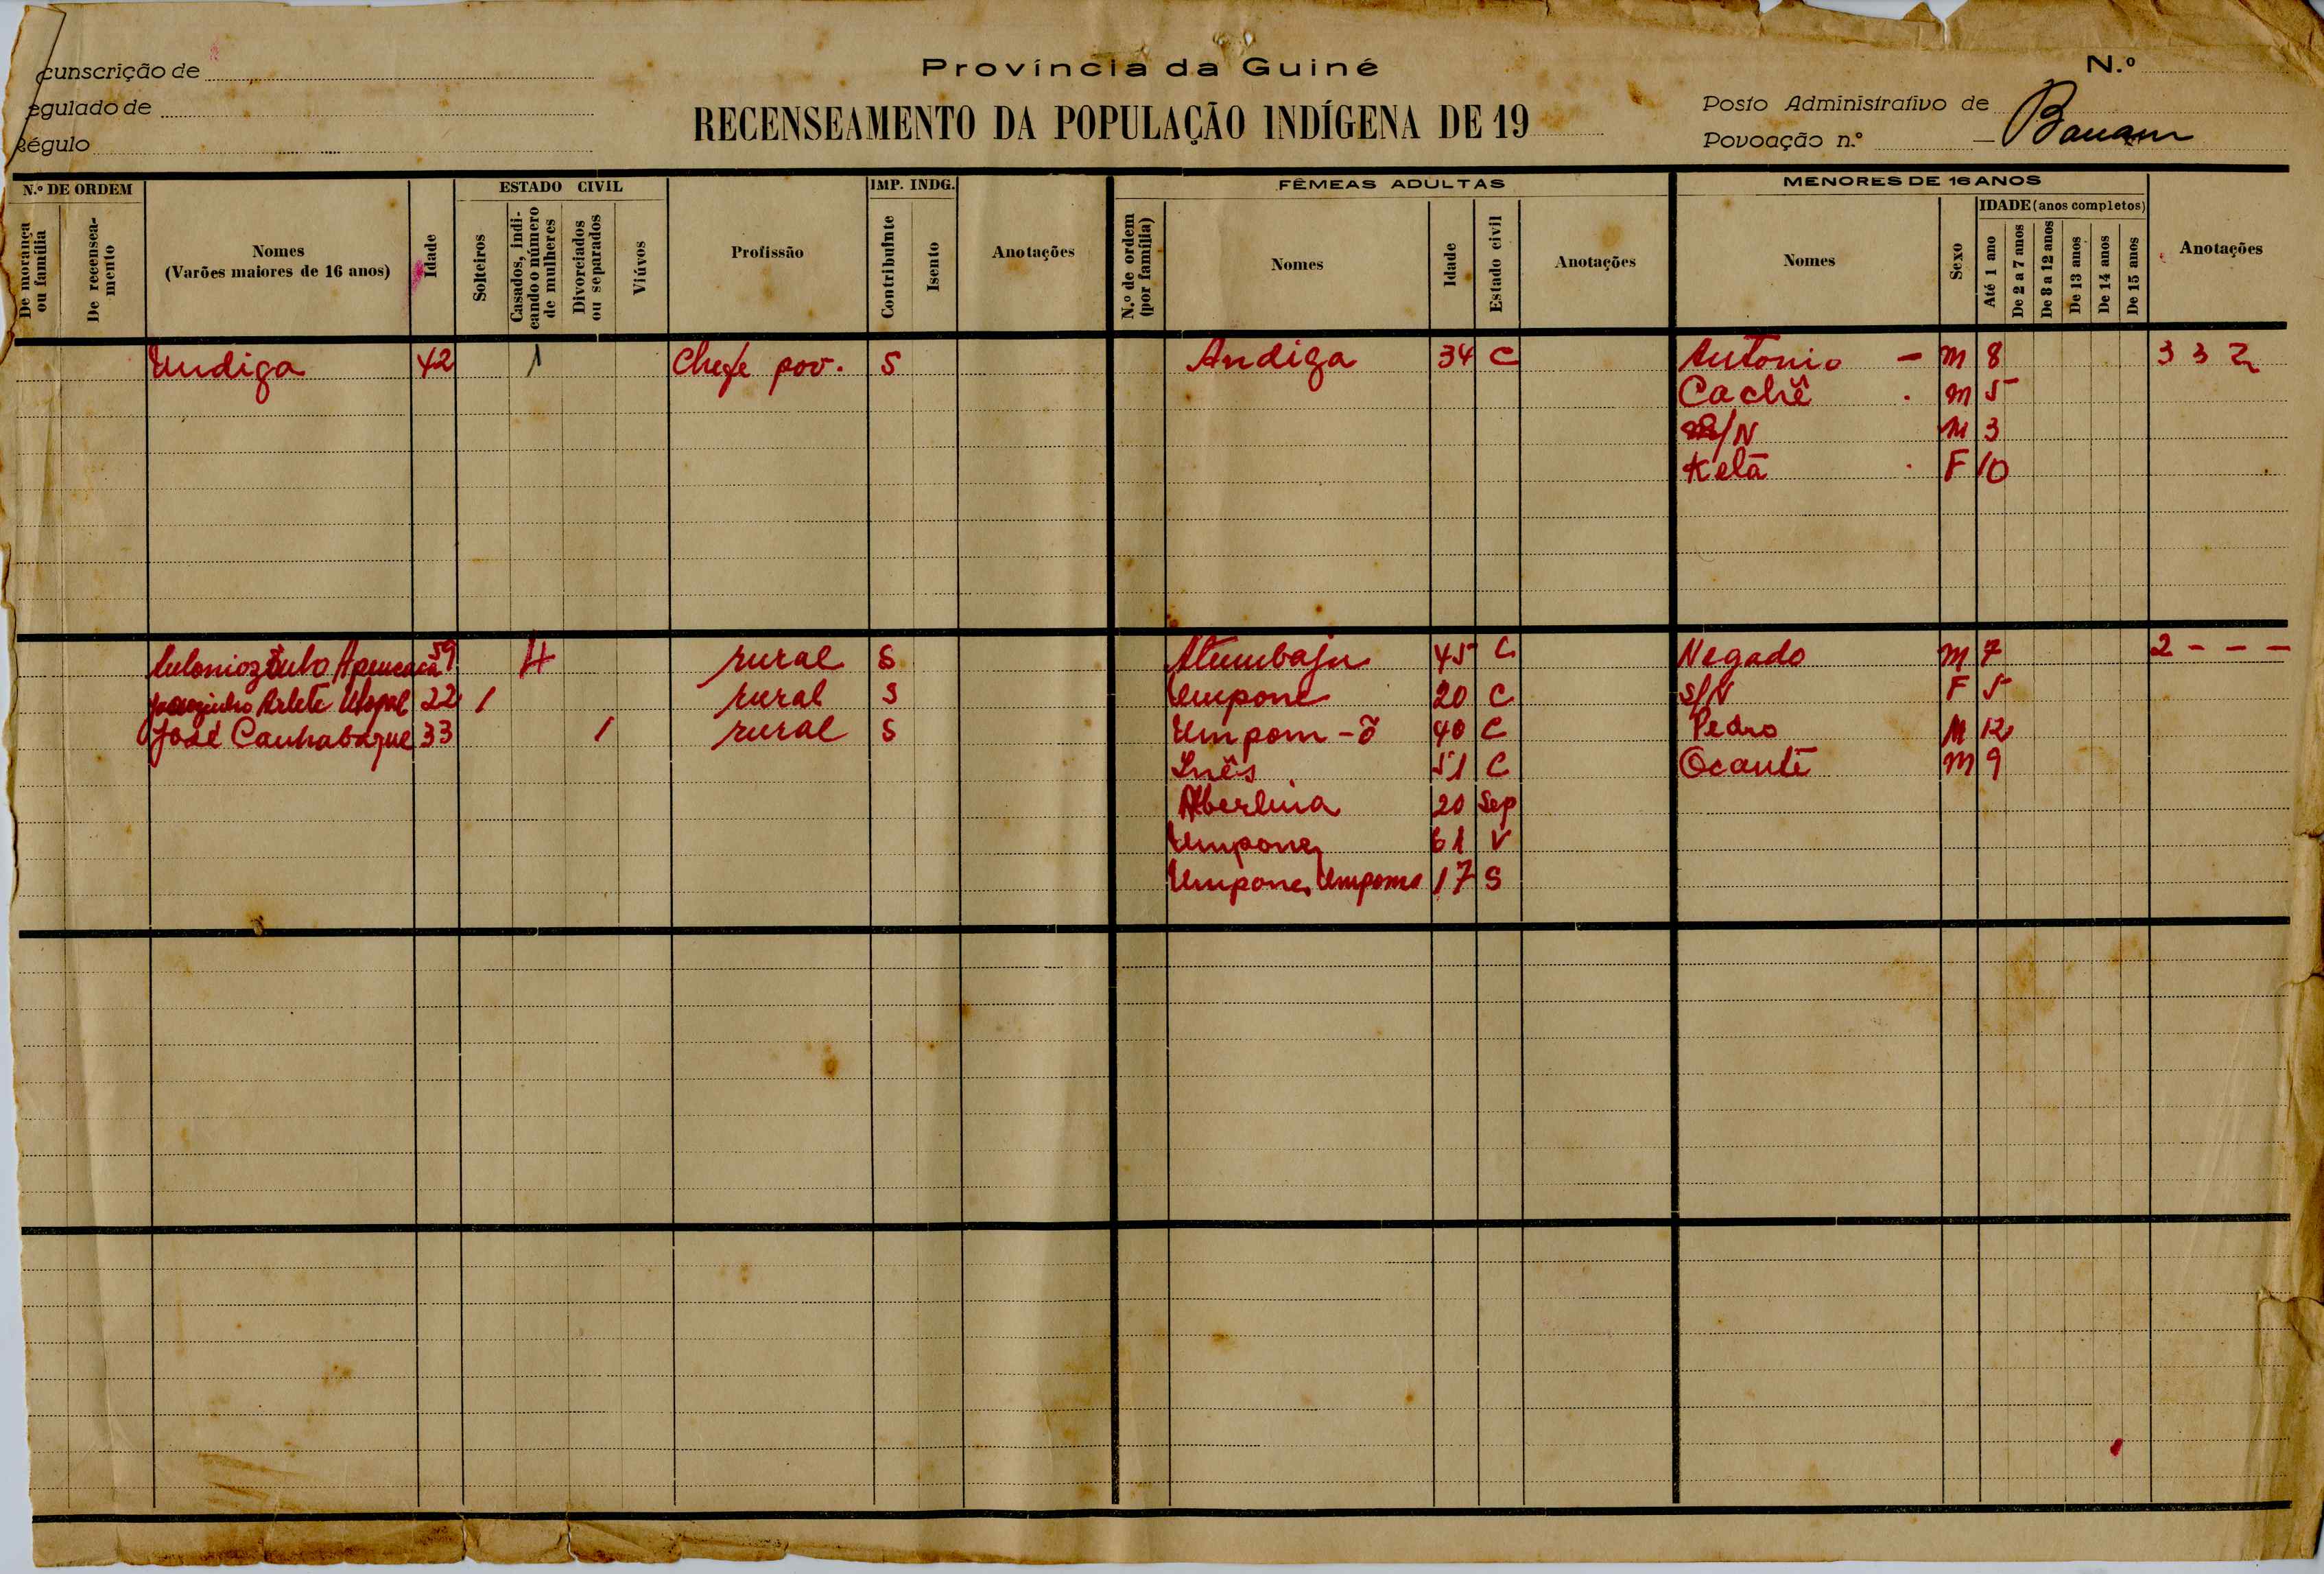 cunscrição de
Província da Guiné
N.º
egulado de
RECENSEAMENTO DA POPULAÇÃO INDÍGENA DE 19
Posto Administrativo de
Régulo
Povoação n.º
N.º DE ORDEM
De morança ou família
De recensea-mento
Nomes
(Varões maiores de 16 anos)
Idade
ESTADO CIVIL
Solteiros
Casados, indi-cando o número de mulheres
Divorciados ou separados
Viúvos
Profissão
IMP. INDG.
Contribuinte
Isento
Anotações
FÊMEAS ADULTAS
N.º de ordem (por família)
Nomes
Idade
Estado civil
Anotações
MENORES DE 16 ANOS
Nomes
Sexo
IDADE (anos completos)
Até 1 ano
De 2 a 7 anos
De 8 a 12 anos
De 13 anos
De 14 anos
De 15 anos
Anotações
Undiga 42 1 Chefe pov. S Andiga 34 C Antonio - M 8 3 3 2
Cachê . M 5
S/N M 3
Kelã . F 10
59 4 rural S 45 C Negado M 7 2 - - -
Arlete 22 1 rural S Umpone 20 C S/N F 5
José Canhabaque 33 1 rural S Umpom-õ 40 C Pedro M 12
Inês 51 C Ocante M 9
Albertina 20 Sep
Umpone 61 V
Umpone Umpoma 17 S